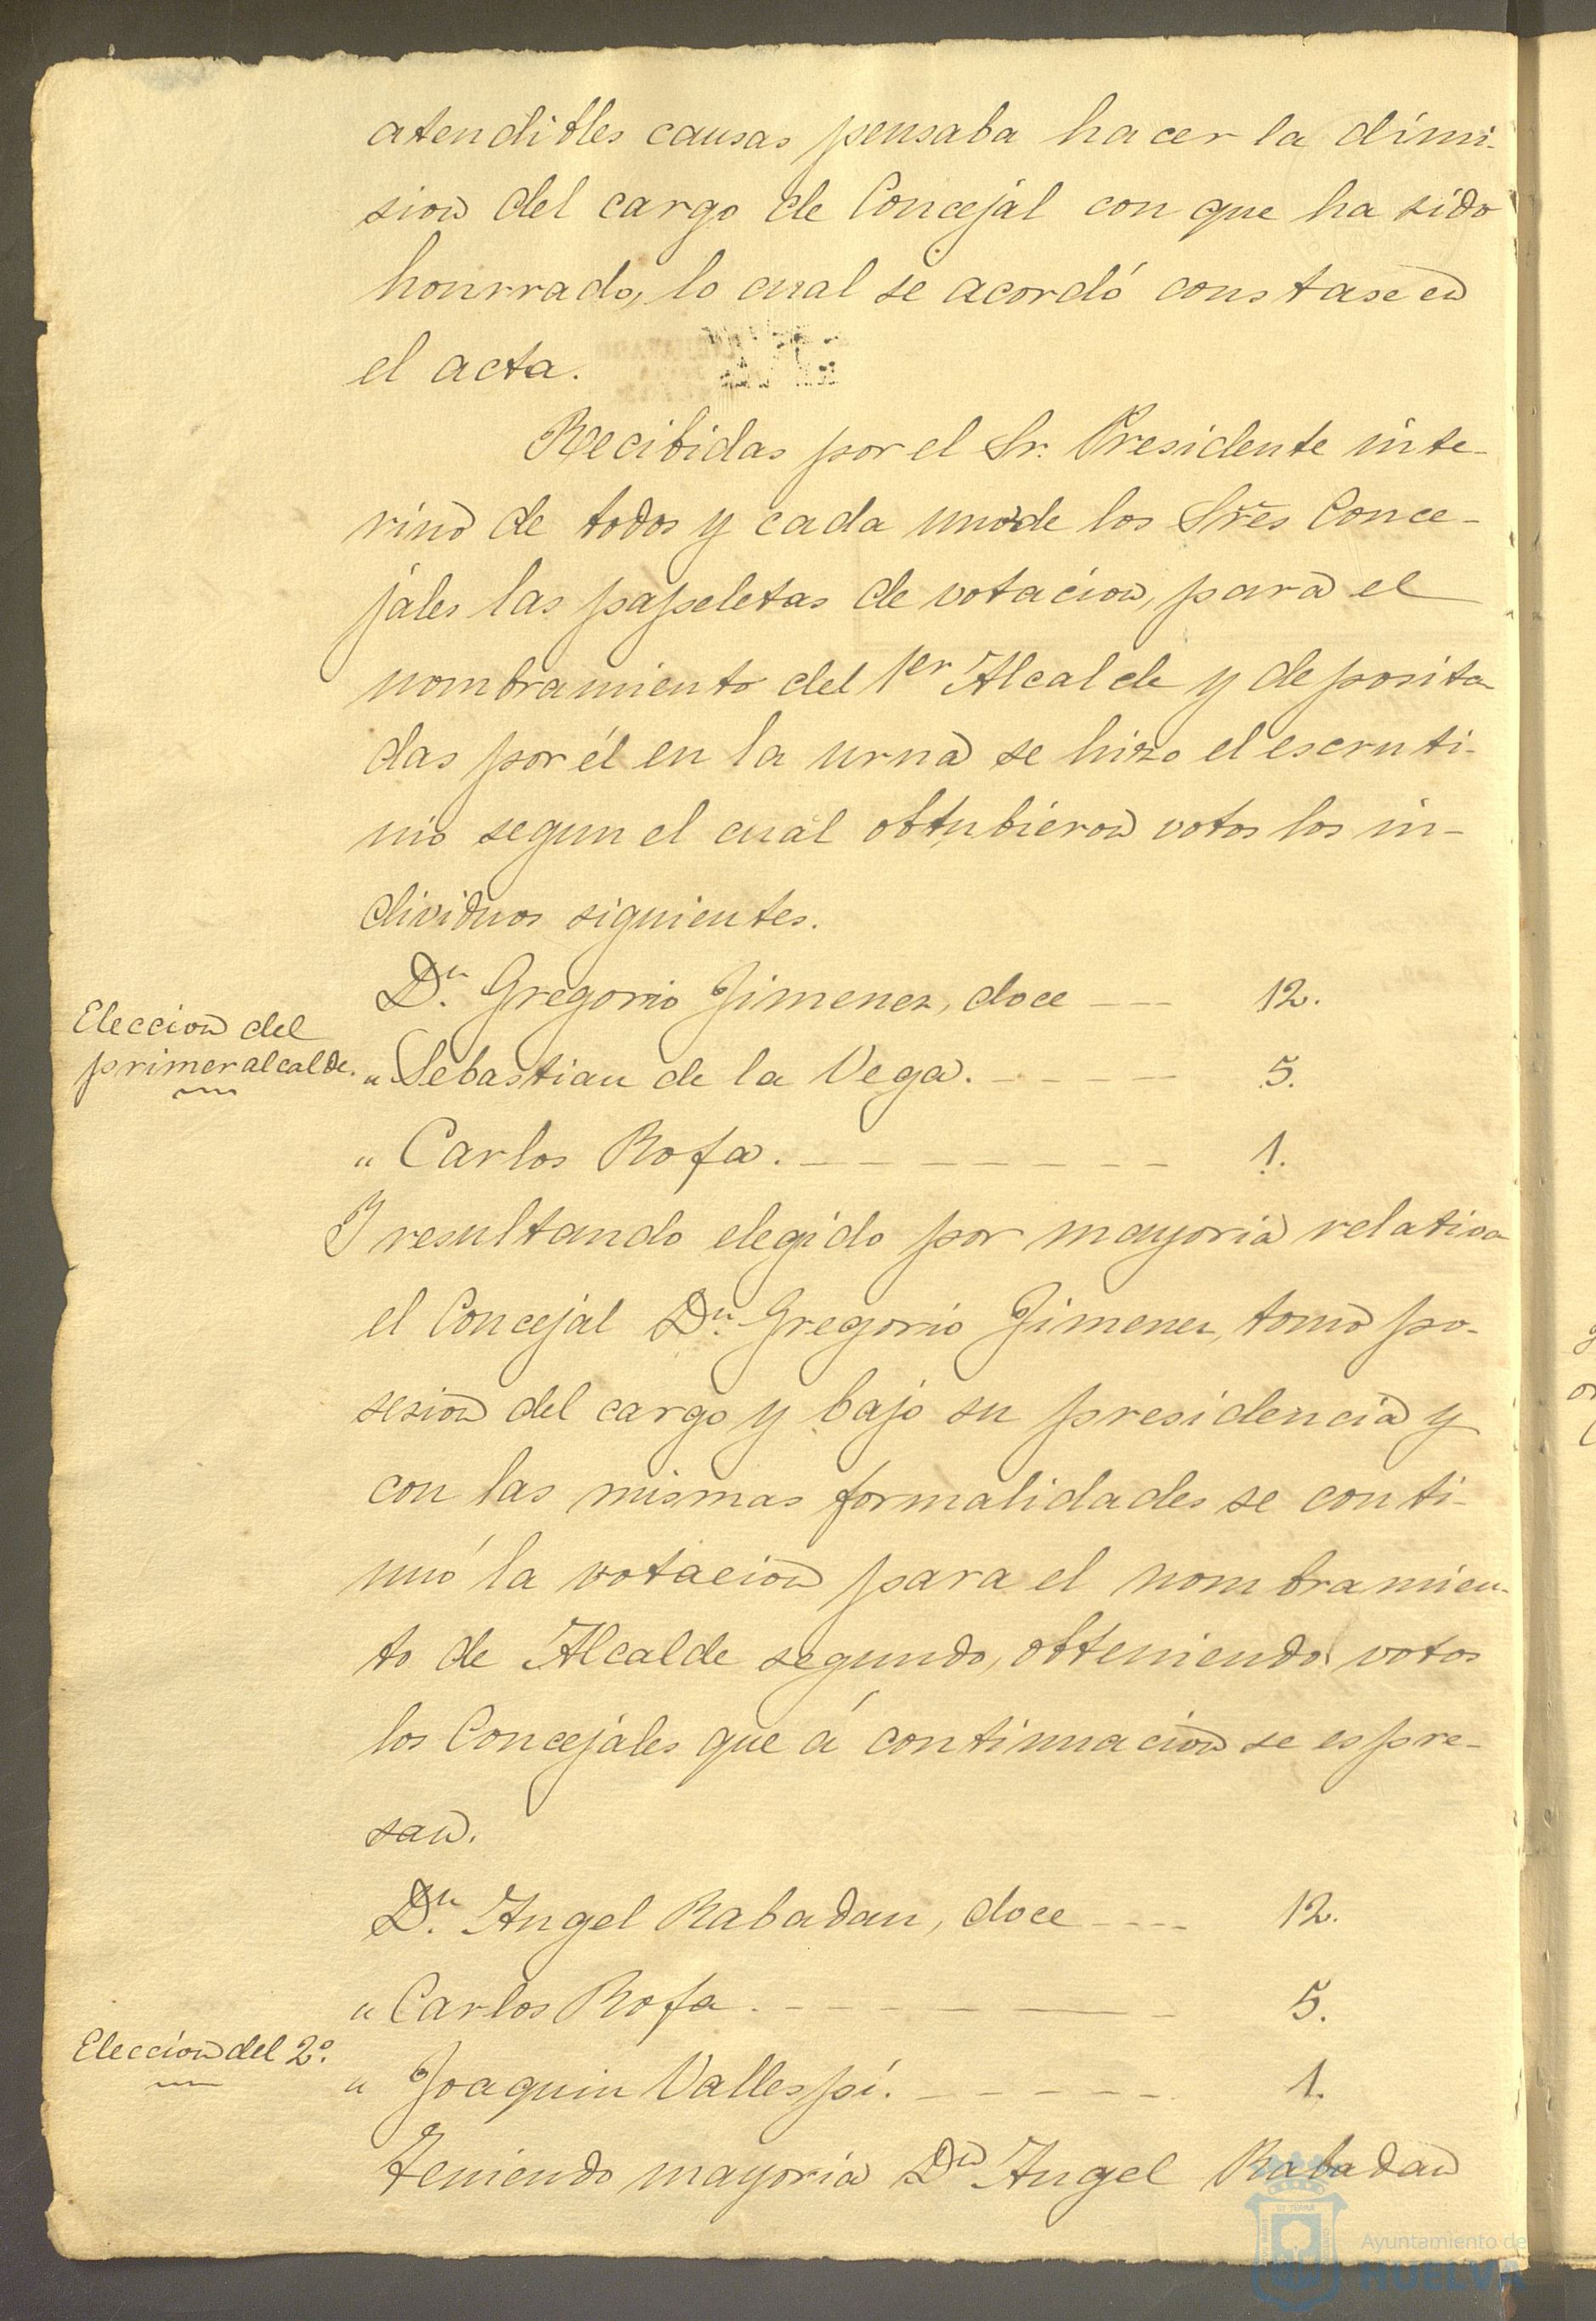 atendibles causas pensaba hacer la dimi-
sion del cargo de Concejal con que ha sido
honrrado, lo cual se acordó constase en
el acta.
Recibidas por el Sr. Presidente inte-
rino de todos y cada uno de los Sres Conce-
jales las papeletas de votacion, para el
nombramiento del 1er Alcalde y deposita
das por él en la urna se hizo el escruti-
nio segun el cual obtubieron votos los in-
dividuos siguientes.
Dn. Gregorio Jimenez, doce --- 12.
Eleccion del
primer alcalde.
" Sebastian de la Vega. ----- 5.
" Carlos Rofa. -------- 1.
Y resultando elegido por mayoria relativa
el Concejal Dn. Gregorio Jimenez, tomó po-
sesion del cargo y bajo su presidencia y
con las mismas formalidades se conti-
nuó la votacion para el nombramien-
to de Alcalde segundo, obteniendo votos
los Concejales que á continuacion se espre-
san.
Dn. Angel Rabadan, doce ---- 12.
" Carlos Rofa. ------- 5.
Eleccion del 2º.
" Joaquin Vallespí. ------ 1.
Teniendo mayoria Dn Angel Rabadan
Ayuntamiento de
HUELVA